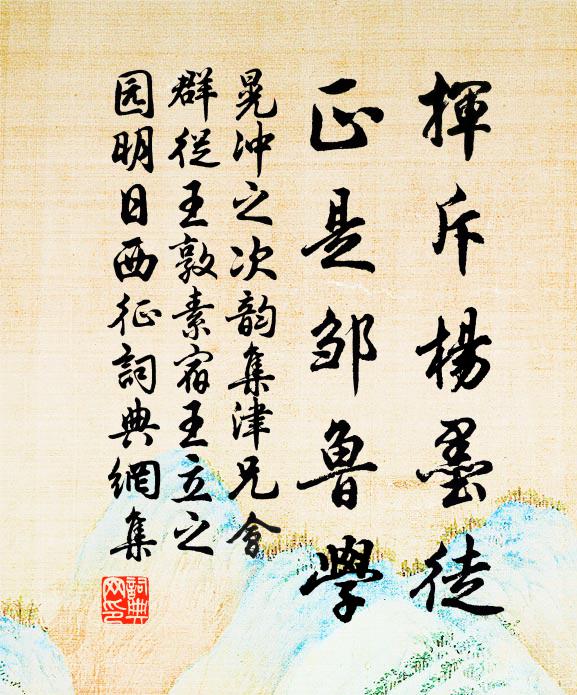 揮斥楊墨徒
正是邹魯學
晃沖之次韵集津兄會
群從王敦素宿王立之
园明日西征詞典網集
詞典网印